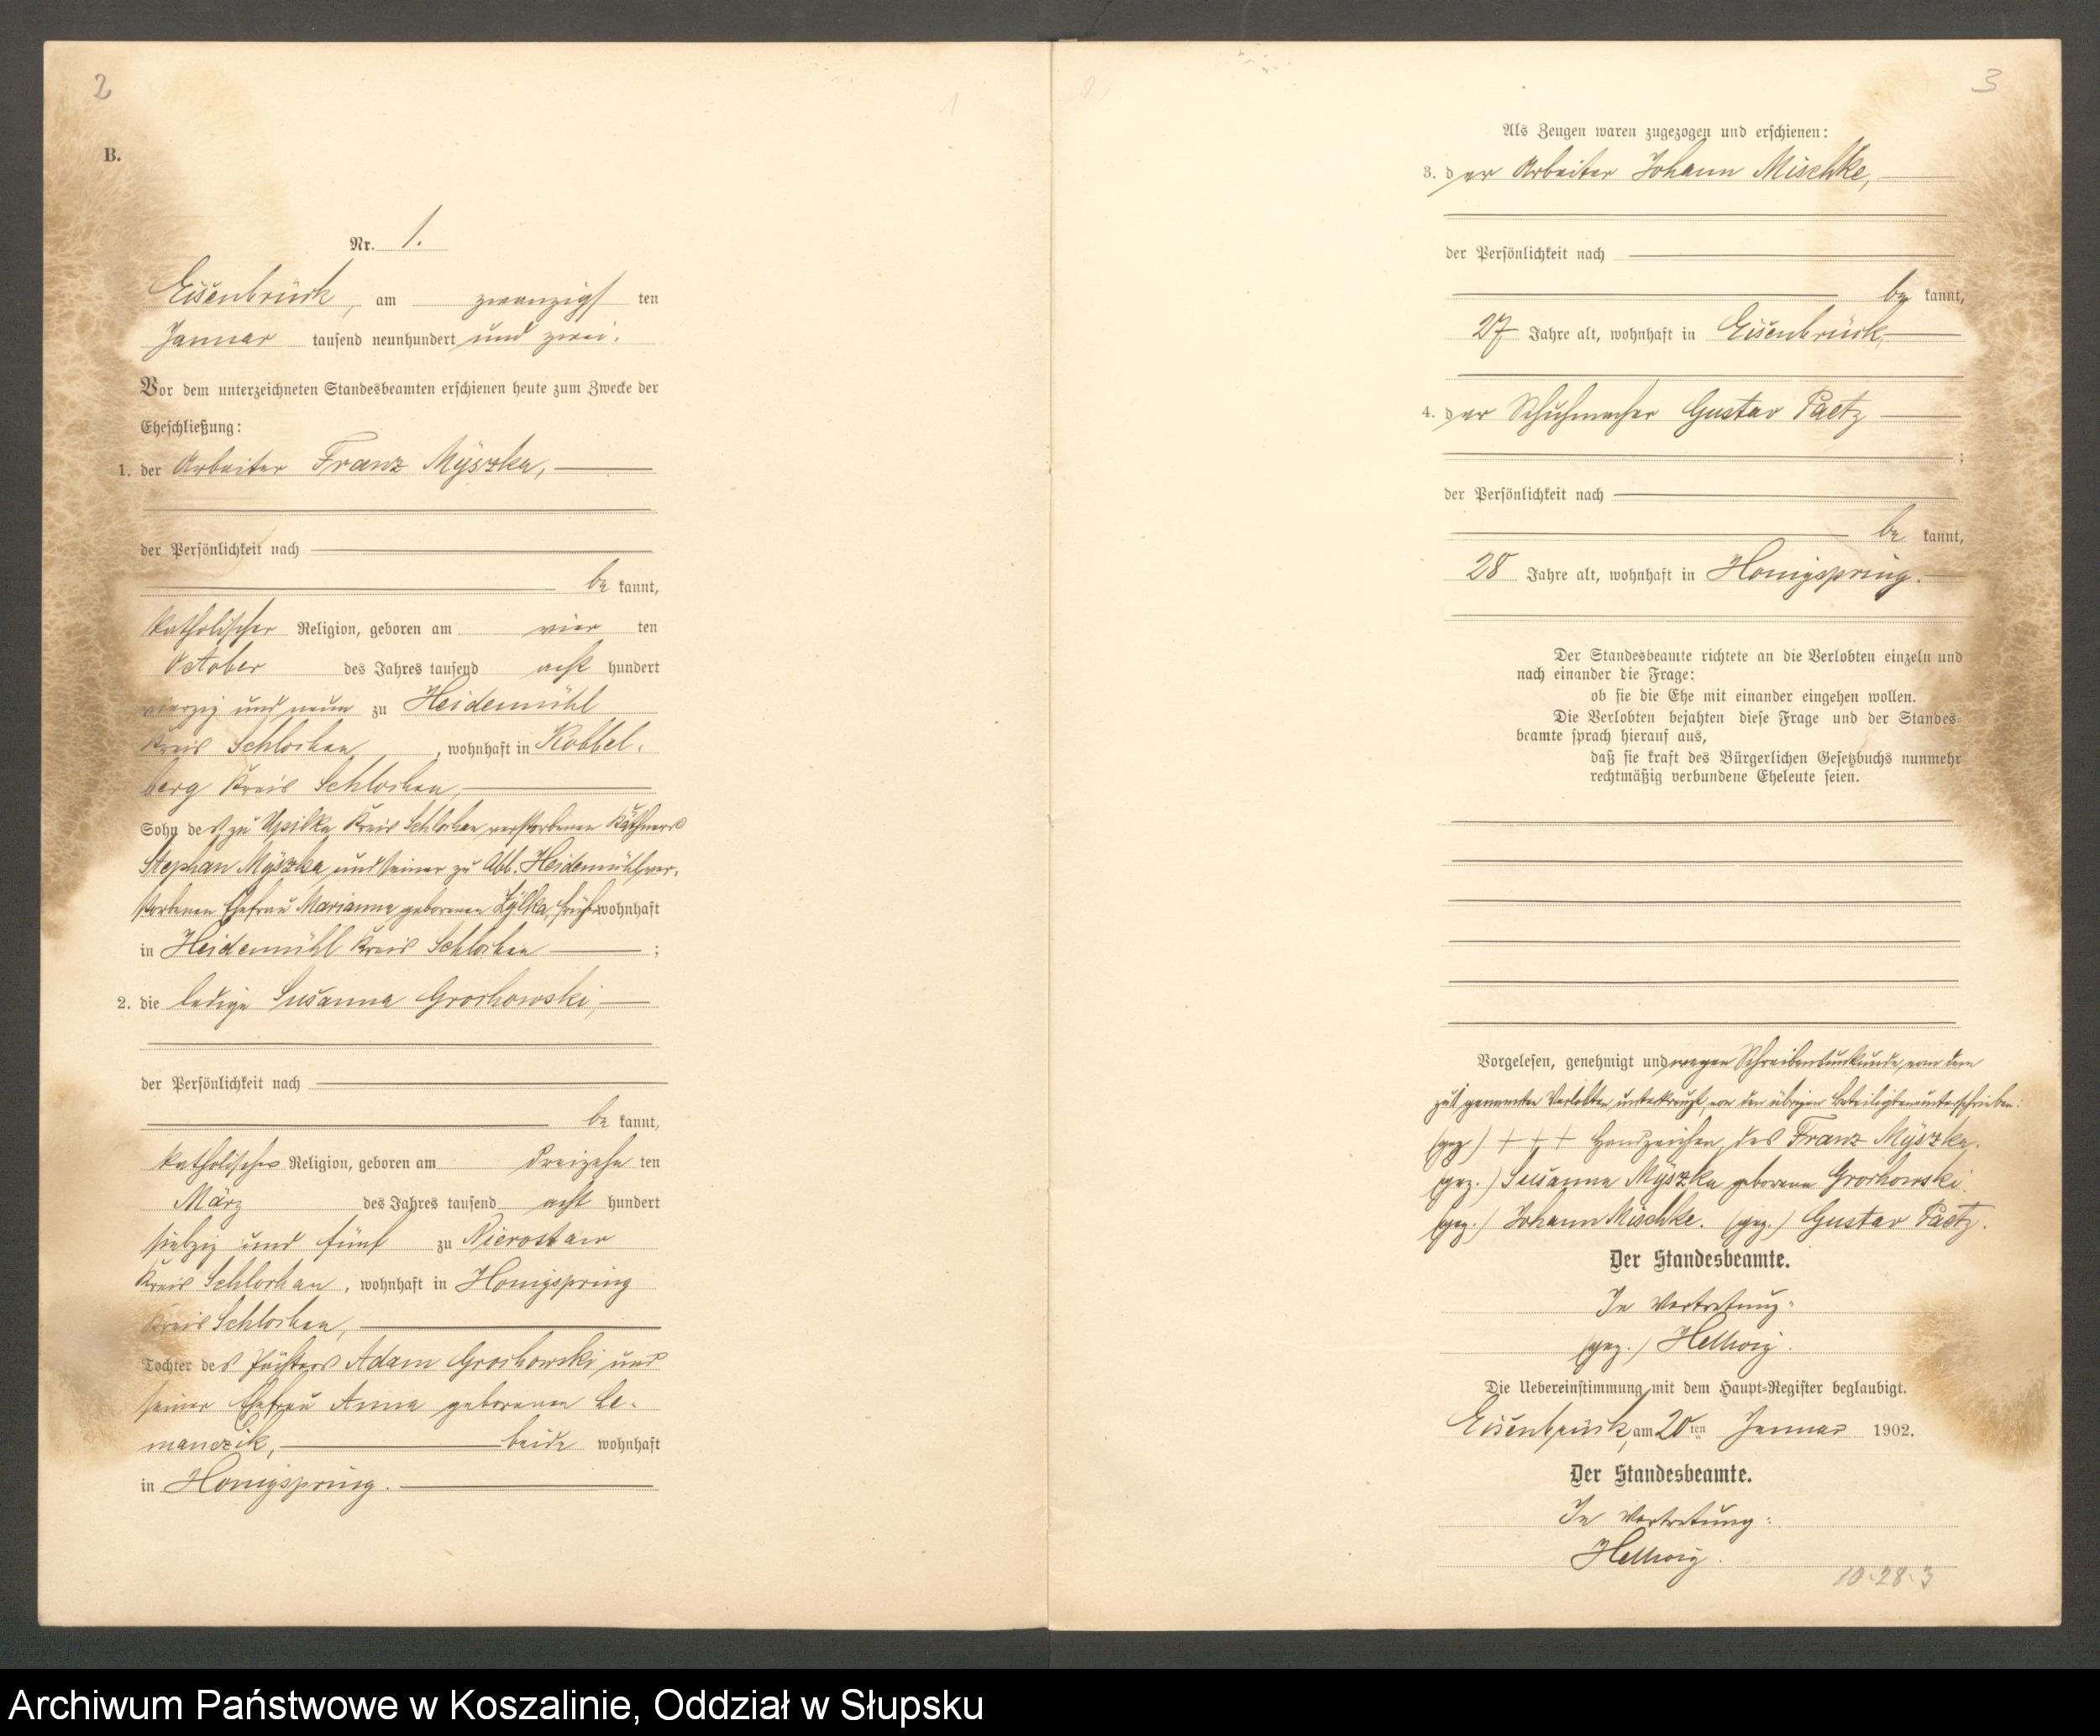 2
B.
Nr. 1.
Eisenbrück, am zwanzigsten
Januar tausend neunhundert und zwei.
Vor dem unterzeichneten Standesbeamten erschienen heute zum Zwecke der
Eheschließung:
1. der Arbeiter Franz Myszka,
der Persönlichkeit nach
be kannt,
katholischer Religion, geboren am vier ten
October des Jahres tausend acht hundert
vierzig und neun zu Heidemühl
Kreis Schlochau, wohnhaft in Kobbel-
berg Kreis Schlochau,
Sohn des zu Upilka Kreis Schlochau verstorbenen Käthners
Stephan Myszka und seiner zu Abb. Heidemühl ver-
storbenen Ehefrau Marianna geborenen wohnhaft
in Heidemühl Kreis Schlochau ;
2. die ledige Susanna Grochowski,
der Persönlichkeit nach
be kannt,
katholischer Religion, geboren am dreizehn ten
März des Jahres tausend acht hundert
siebzig und fünf zu Nierostaw
Kreis Schlochau, wohnhaft in Honigspring
Kreis Schlochau,
Tochter des Adam Grochowski und
seiner Ehefrau Anna geborenen Le-
manczik, beide wohnhaft
in Honigspring.
3
Als Zeugen waren zugezogen und erschienen:
3. der Arbeiter Johann Mischke,
der Persönlichkeit nach
be kannt,
27 Jahre alt, wohnhaft in Eisenbrück,
4. der Schuhmacher Gustav Paetz
;
der Persönlichkeit nach
be kannt,
28 Jahre alt, wohnhaft in Honigspring.
Der Standesbeamte richtete an die Verlobten einzeln und
nach einander die Frage:
ob sie die Ehe mit einander eingehen wollen.
Die Verlobten bejahten diese Frage und der Standes-
beamte sprach hierauf aus,
daß sie kraft des Bürgerlichen Gesetzbuchs nunmehr
rechtmäßig verbundene Eheleute seien.
Vorgelesen, genehmigt und wegen Schreibensunkunde von dem
zu 1 genannten Verlobten unterkreuzt, von den übrigen Beteiligten unterschrieben:
(gez.) + + + Handzeichen des Franz Myszka.
(gez.) Susanna Myszka geborene Grochowski.
(gez.) Johann Mischke. (gez.) Gustav Paetz.
Der Standesbeamte.
In Vertretung:
(gez.) Hellwig.
Die Uebereinstimmung mit dem Haupt-Register beglaubigt.
Eisenbrück, am 20 ten Januar 1902.
Der Standesbeamte.
In Vertretung:
Hellwig.
10-28-3
Archiwum Państwowe w Koszalinie, Oddział w Słupsku